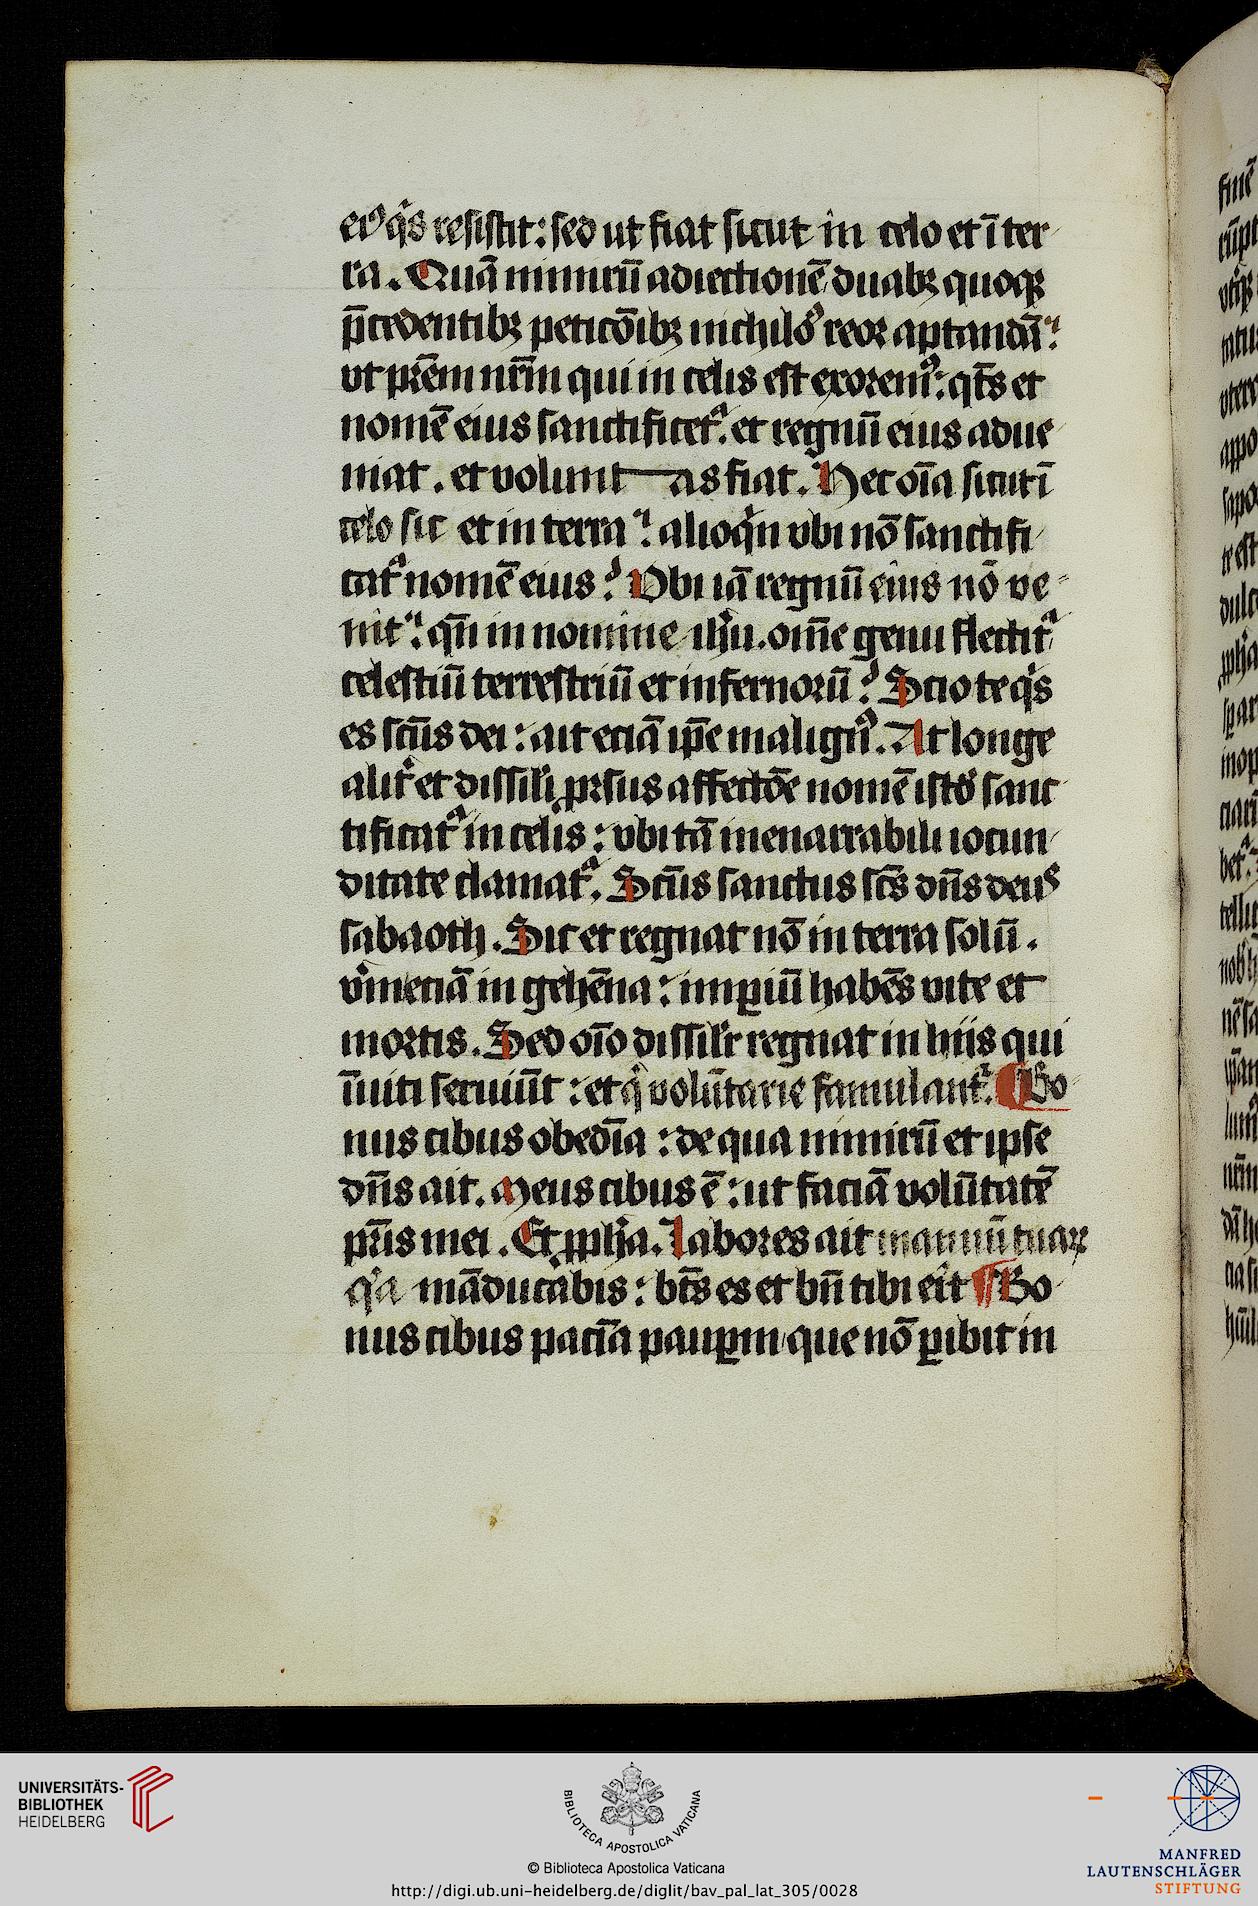 eiꝰ q̇s resistit : sed ut fiat sicut in celo et ī ter
ra . Quā nimirū adiectionē duabꝫ quoqꝫ
p̄cedentibꝫ peticōibꝫ nichilo᷒ reor aptandā :
ut pr̄em nr̄m qui in celis est exoremꝰ : qt̄s et
nomē eius sanctificet᷑ . et regnū eius adue
niat . et volunt as fiat . Hec oīa sicut ī
celo sic et in terra : alioq̇n vbi nō sanctifi
cat᷑ nomē eius ? Vbi iā regnū eius nō ve
nit : qn̄ in nomine ih̄u . om̄e genu flectit᷑
celestiū terrestriū et infernorū ? Scio te q̇s
es sc̄us dei : ait eciā ip̄e malignꝰ . At longe
alit᷑ et dissil'i ꝓrsus affectōe nomē istd᷒ sanc
tificat᷑ in celis : vbi tā inenarrabili iocun
ditate clamat᷑ . Sc̄us sanctus sc̄s dn̄s deus
sabaoth . Sic et regnat nō in terra solū .
v̇m eciā in gehēna : imꝑiū habēs vite et
mortis . Sed oīo dissil'r regnat in hiis qui
īuiti seruiūt : et q̇ volūtarie famulant᷑ . ¶ Bo
nus cibus obedīa : de qua nimirū et ipse
dn̄s ait . Meus cibus ē : ut faciā volūtatē
pr̄is mei . Et ꝓph̄a . Labores ait manuū tuaꝝ
q̇a māducabis : bt̄s es et bn̄ tibi eīt ¶ Bo
nus cibus pacīa pauꝑm que nō ꝑibit in
UNIVERSITÄTS-
BIBLIOTHEK
HEIDELBERG
BIBLIOTECA APOSTOLICA VATICANA
© Biblioteca Apostolica Vaticana
http://digi.ub.uni-heidelberg.de/diglit/bav_pal_lat_305/0028
MANFRED
LAUTENSCHLÄGER
STIFTUNG